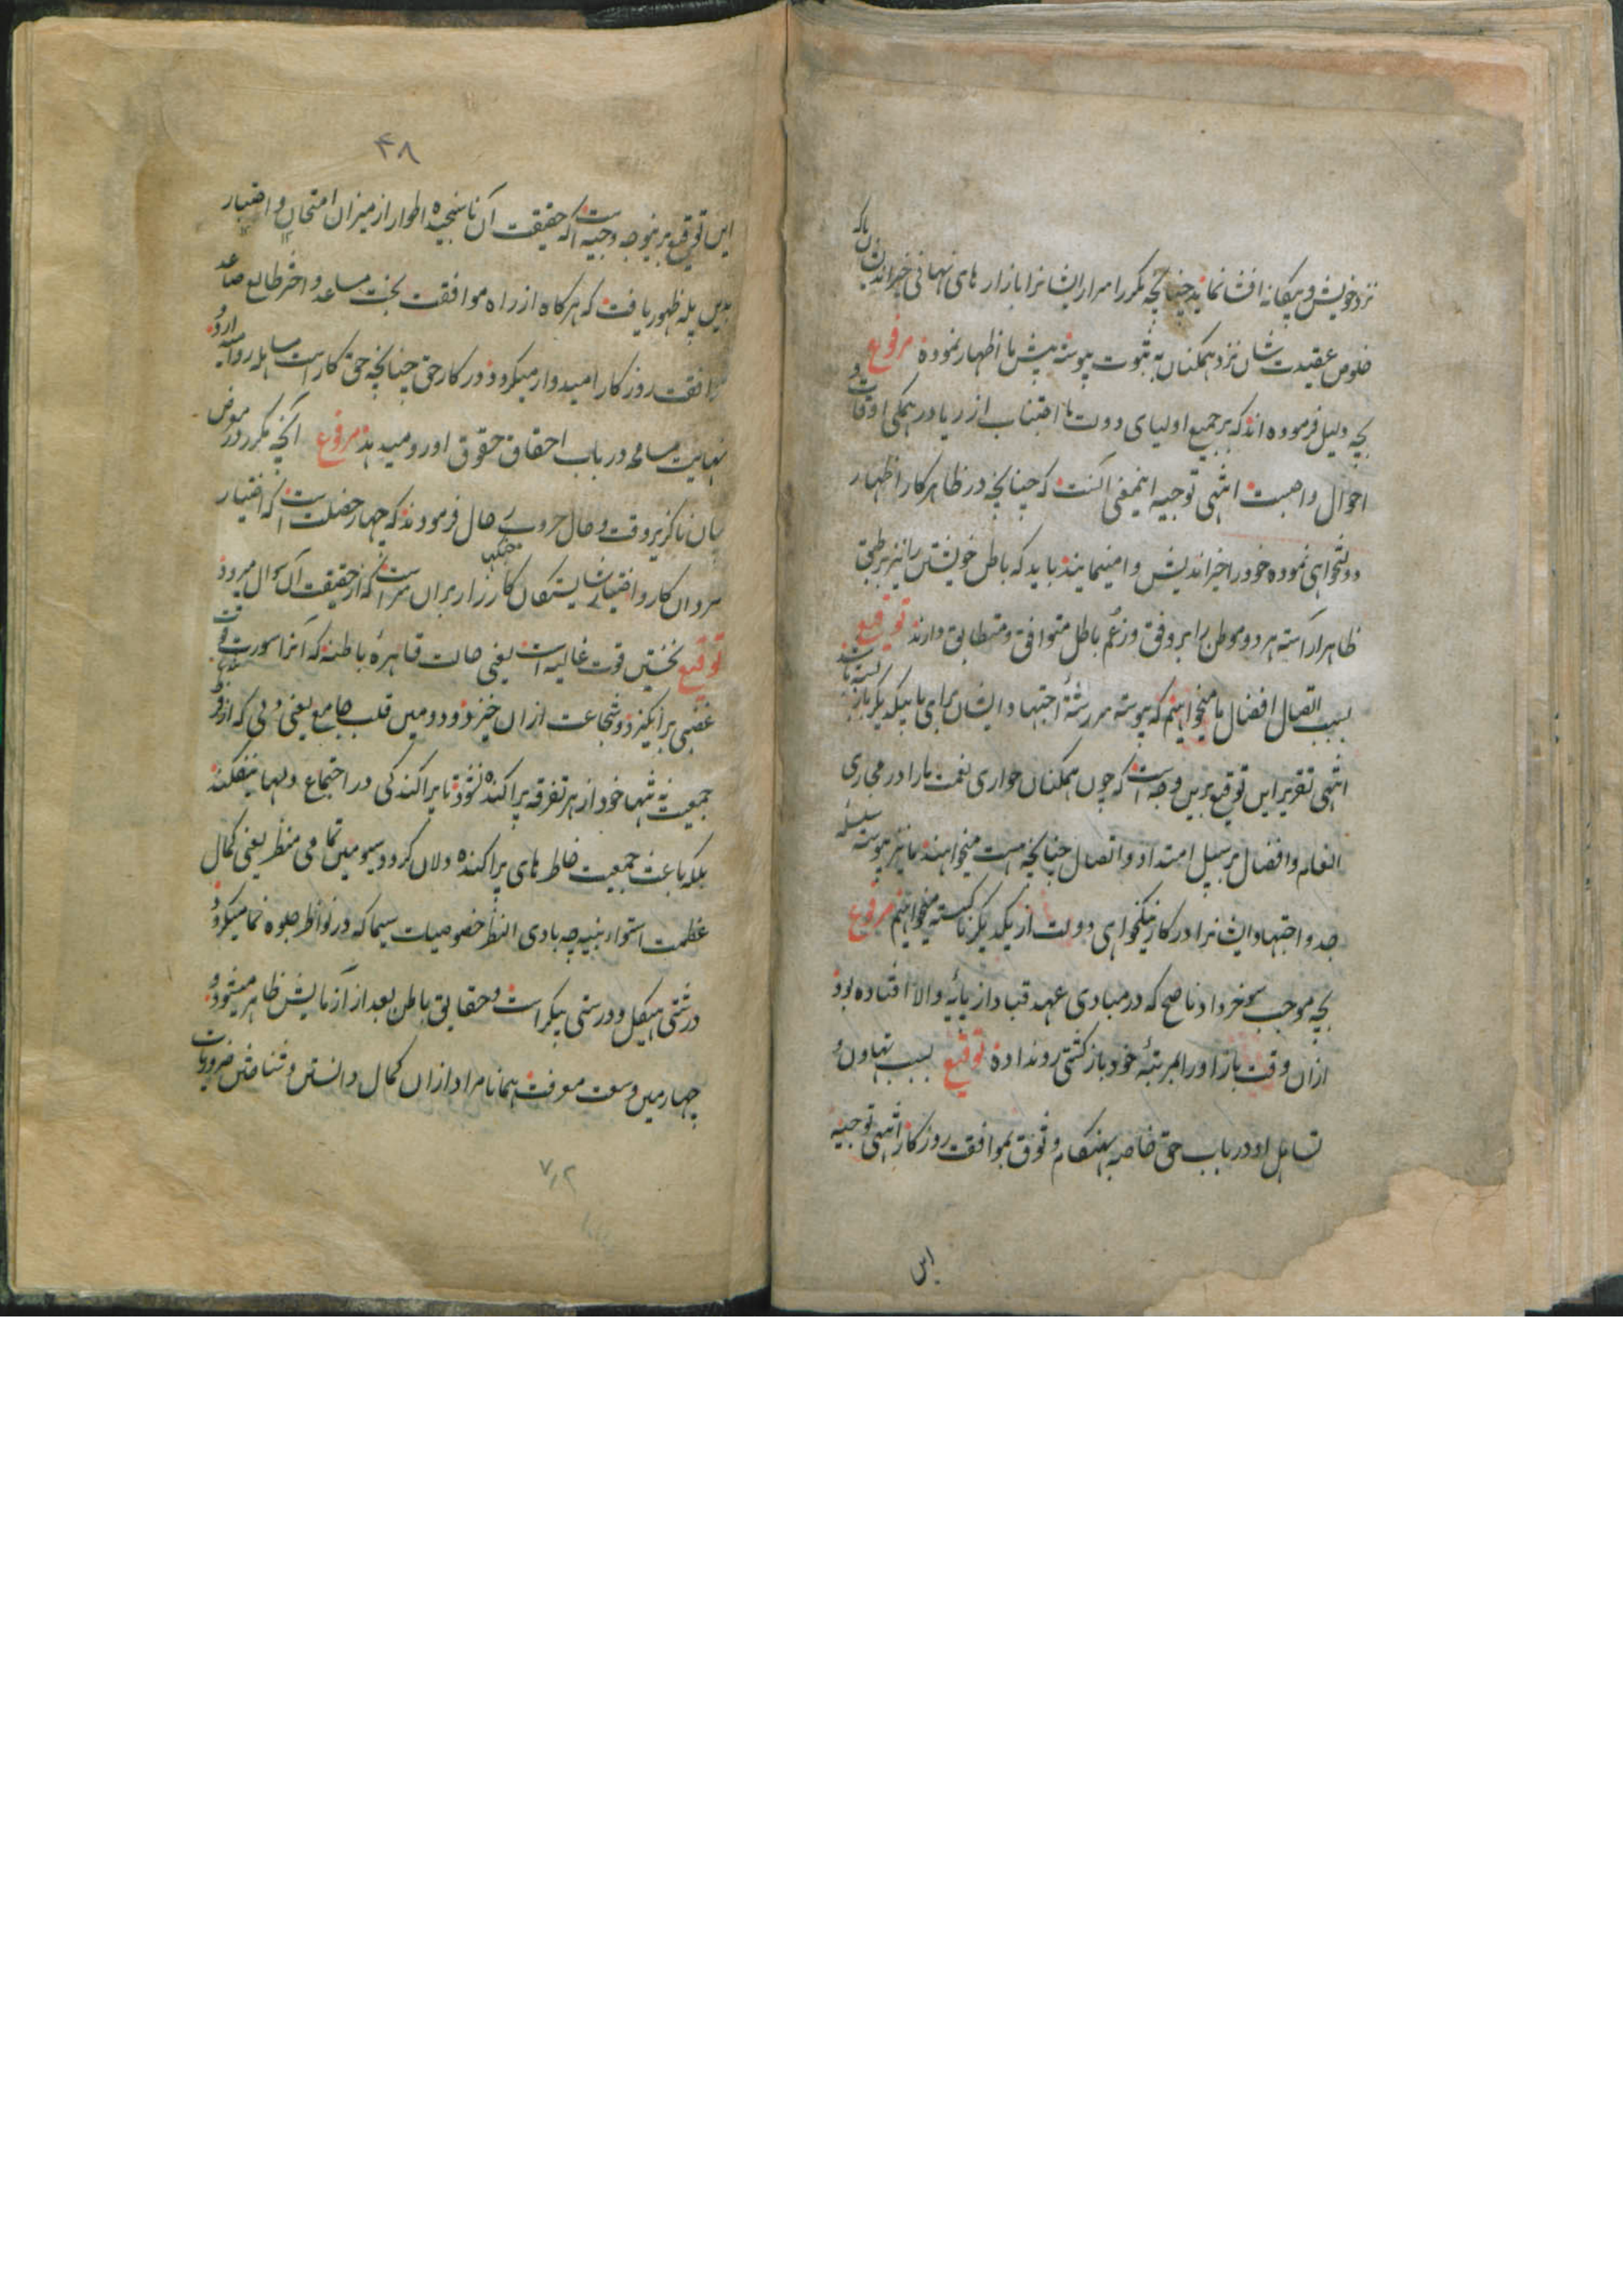 نزد خویش و بیگانه افشا نماید چنانچه مکرر اسرار ایشانرا با راز های نهانی خیراندیشان که
خلوص عقیدت شان نزد همکنان به ثبوت پیوسته پیش ما اظهار نموده مرفوع
بچه دلیل فرموده اند که بر جمیع اولیای دولت ما اجتناب از ریا در همگی اوقات و
احوال واجبست انتهی توجیه اینمعنی آنست که چنانچه در ظاهر کار اظهار
دولتخواهی نموده خود را خیراندیش وا مینمایند باید که باطن خویشتن را نیز بر طبق
ظاهر آراسته هر دو موطن را بر وفق و زعم باطن متوافق و متطابق دارند توقیع
بسبب اتصال افضال ما میخواهیم که پیوسته سررشتهٔ اجتهاد ایشان برای ما بیکدیگر باز بسته باشد
انتهی تقریر این توقیع برین وجه است که چون همکنان جواری نعمت ما را در مجاری
انعام و افضال بر سبیل امتداد و اتصال چنانچه هست میخواهند ما نیز پیوسته سلسله
جد و اجتهاد ایشانرا در کار نیکخواهی دولت از یکدیگر ناگسسته میخواهیم مرفوع
بچه موجب خرداد ناصح که در مبادی عهد قباد از پایهٔ والا افتاده بود
ازان وقت باز او را بمرتبهٔ خود بازگشتی روند اده توقیع بسبب تهاون و
تساهل او در باب حق خاصه بهنگام وثوق بموافقت روزگار انتهی توجیه
این
۴۸
این توقیع برینوجه وجیه است که حقیقت آن ناسنجیده اطوار از میزان امتحان و اختبار
بدین پله ظهور یافت که هرگاه از راه موافقت بخت مساعد و اختر طالع صاعد
موافقت روزگار امیدوار میگردد در کار حق چنانچه حق کار است مساهله روا میدارد و
نهایت مسامحه در باب احقاق حقوق او رو میدهد مرفوع آنچه مکرر در معرض
بیان ناگزیر وقت و حال حروب حال فرمودند که چهار خصلت است که اختیار
مردان کار و اختیار شایستگان کارزار بران مراست که از حقیقت آن سوال میرود
توقیع نخستین قوت غالبه است یعنی حالت قاهرهٔ باطنه که آنرا سورت قوت
غضبی برانگیزد و شجاعت ازان خیزد و دومین قلب جامع یعنی دلی که از وفور
جمعیت نه تنها خود از هر تفرقه پراکنده نشود تا پراکندگی در اجتماع دلها نیفکند
بلکه باعث جمعیت خاطر های پراکنده دلان گردد سیومین تمامی منظر یعنی کمال
عظمت استوار بنیه چه بادی النظر خصوصیات سیما که در نواظر جلوه نما میگردد
درشتی هیکل و درستی پیکر است و حقایق باطن بعد از آزمایش ظاهر میشود و
چهارمین وسعت معرفت همانا مراد ازان کمال دانستن و شناختن ضروریات
۷٫۲